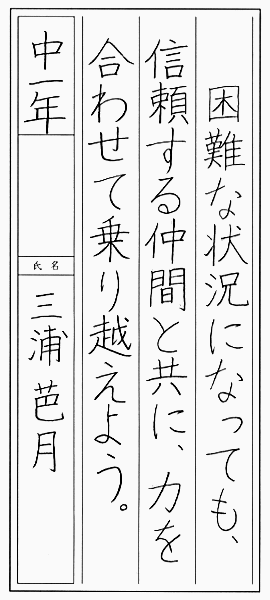 困難な状況になっても、
信頼する仲間と共に、力を
合わせて乗り越えよう。
中一年
氏名
三浦芭月